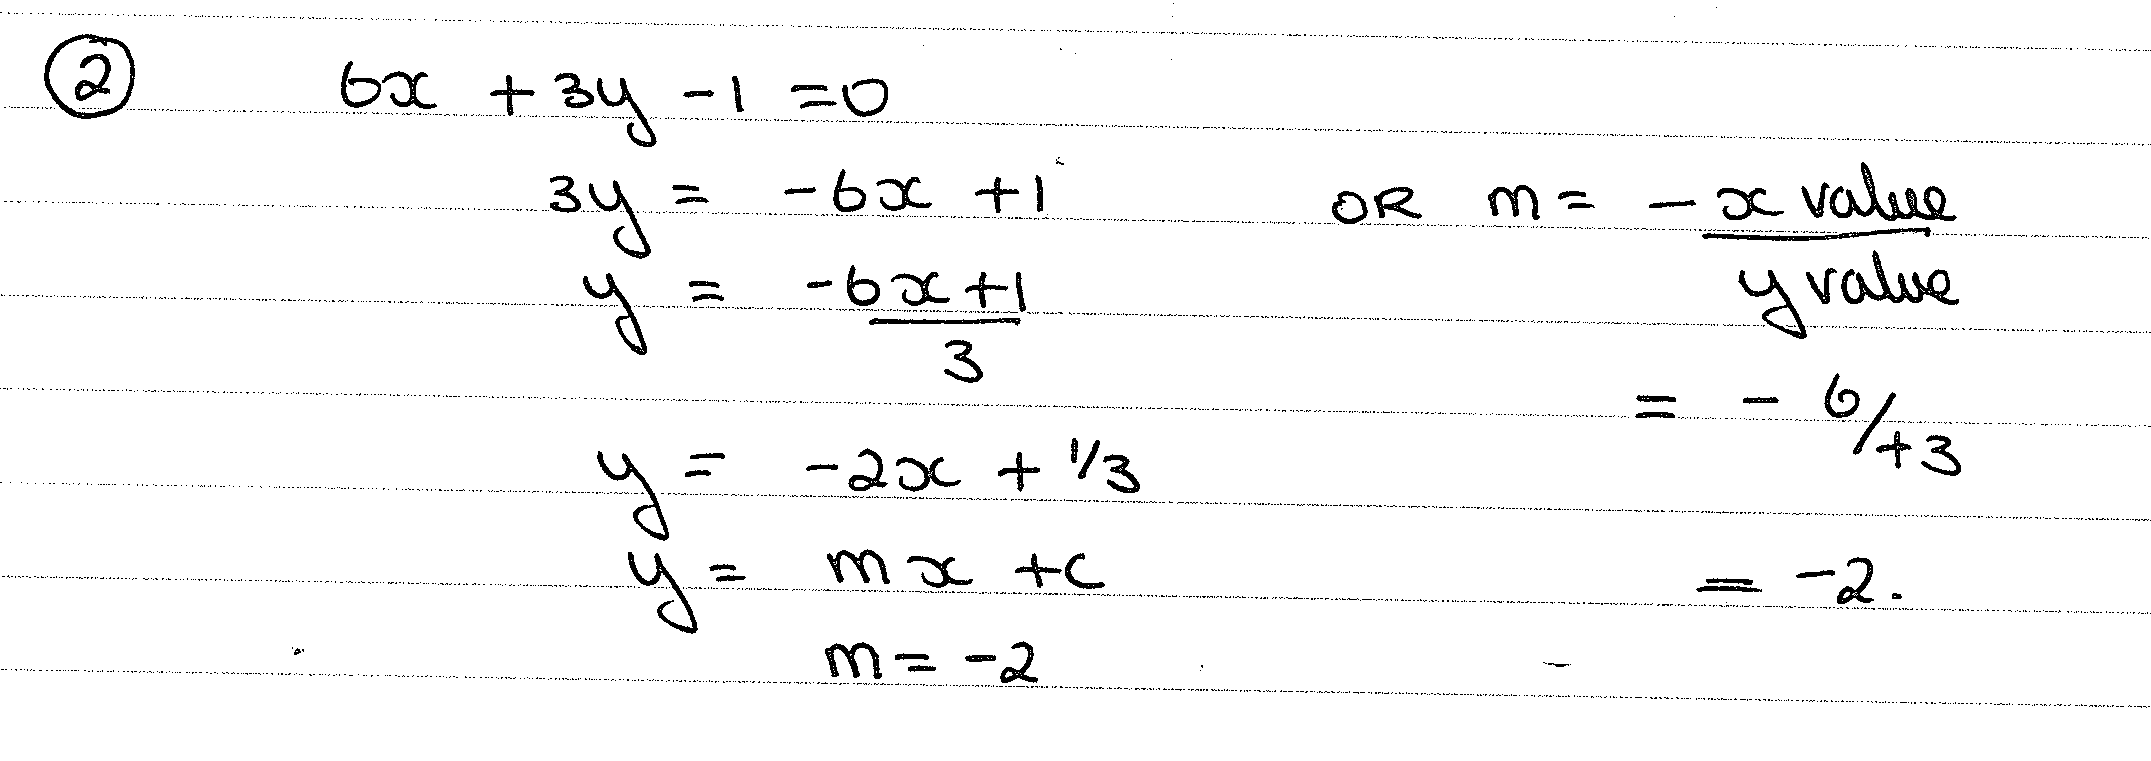 ② 6x + 3y - 1 = 0
3y = -6x + 1
y = -6x + 1
3
y = -2x + 1/3
y = mx + c
m = -2
OR m = - x value
y value
= - 6/+3
= -2.